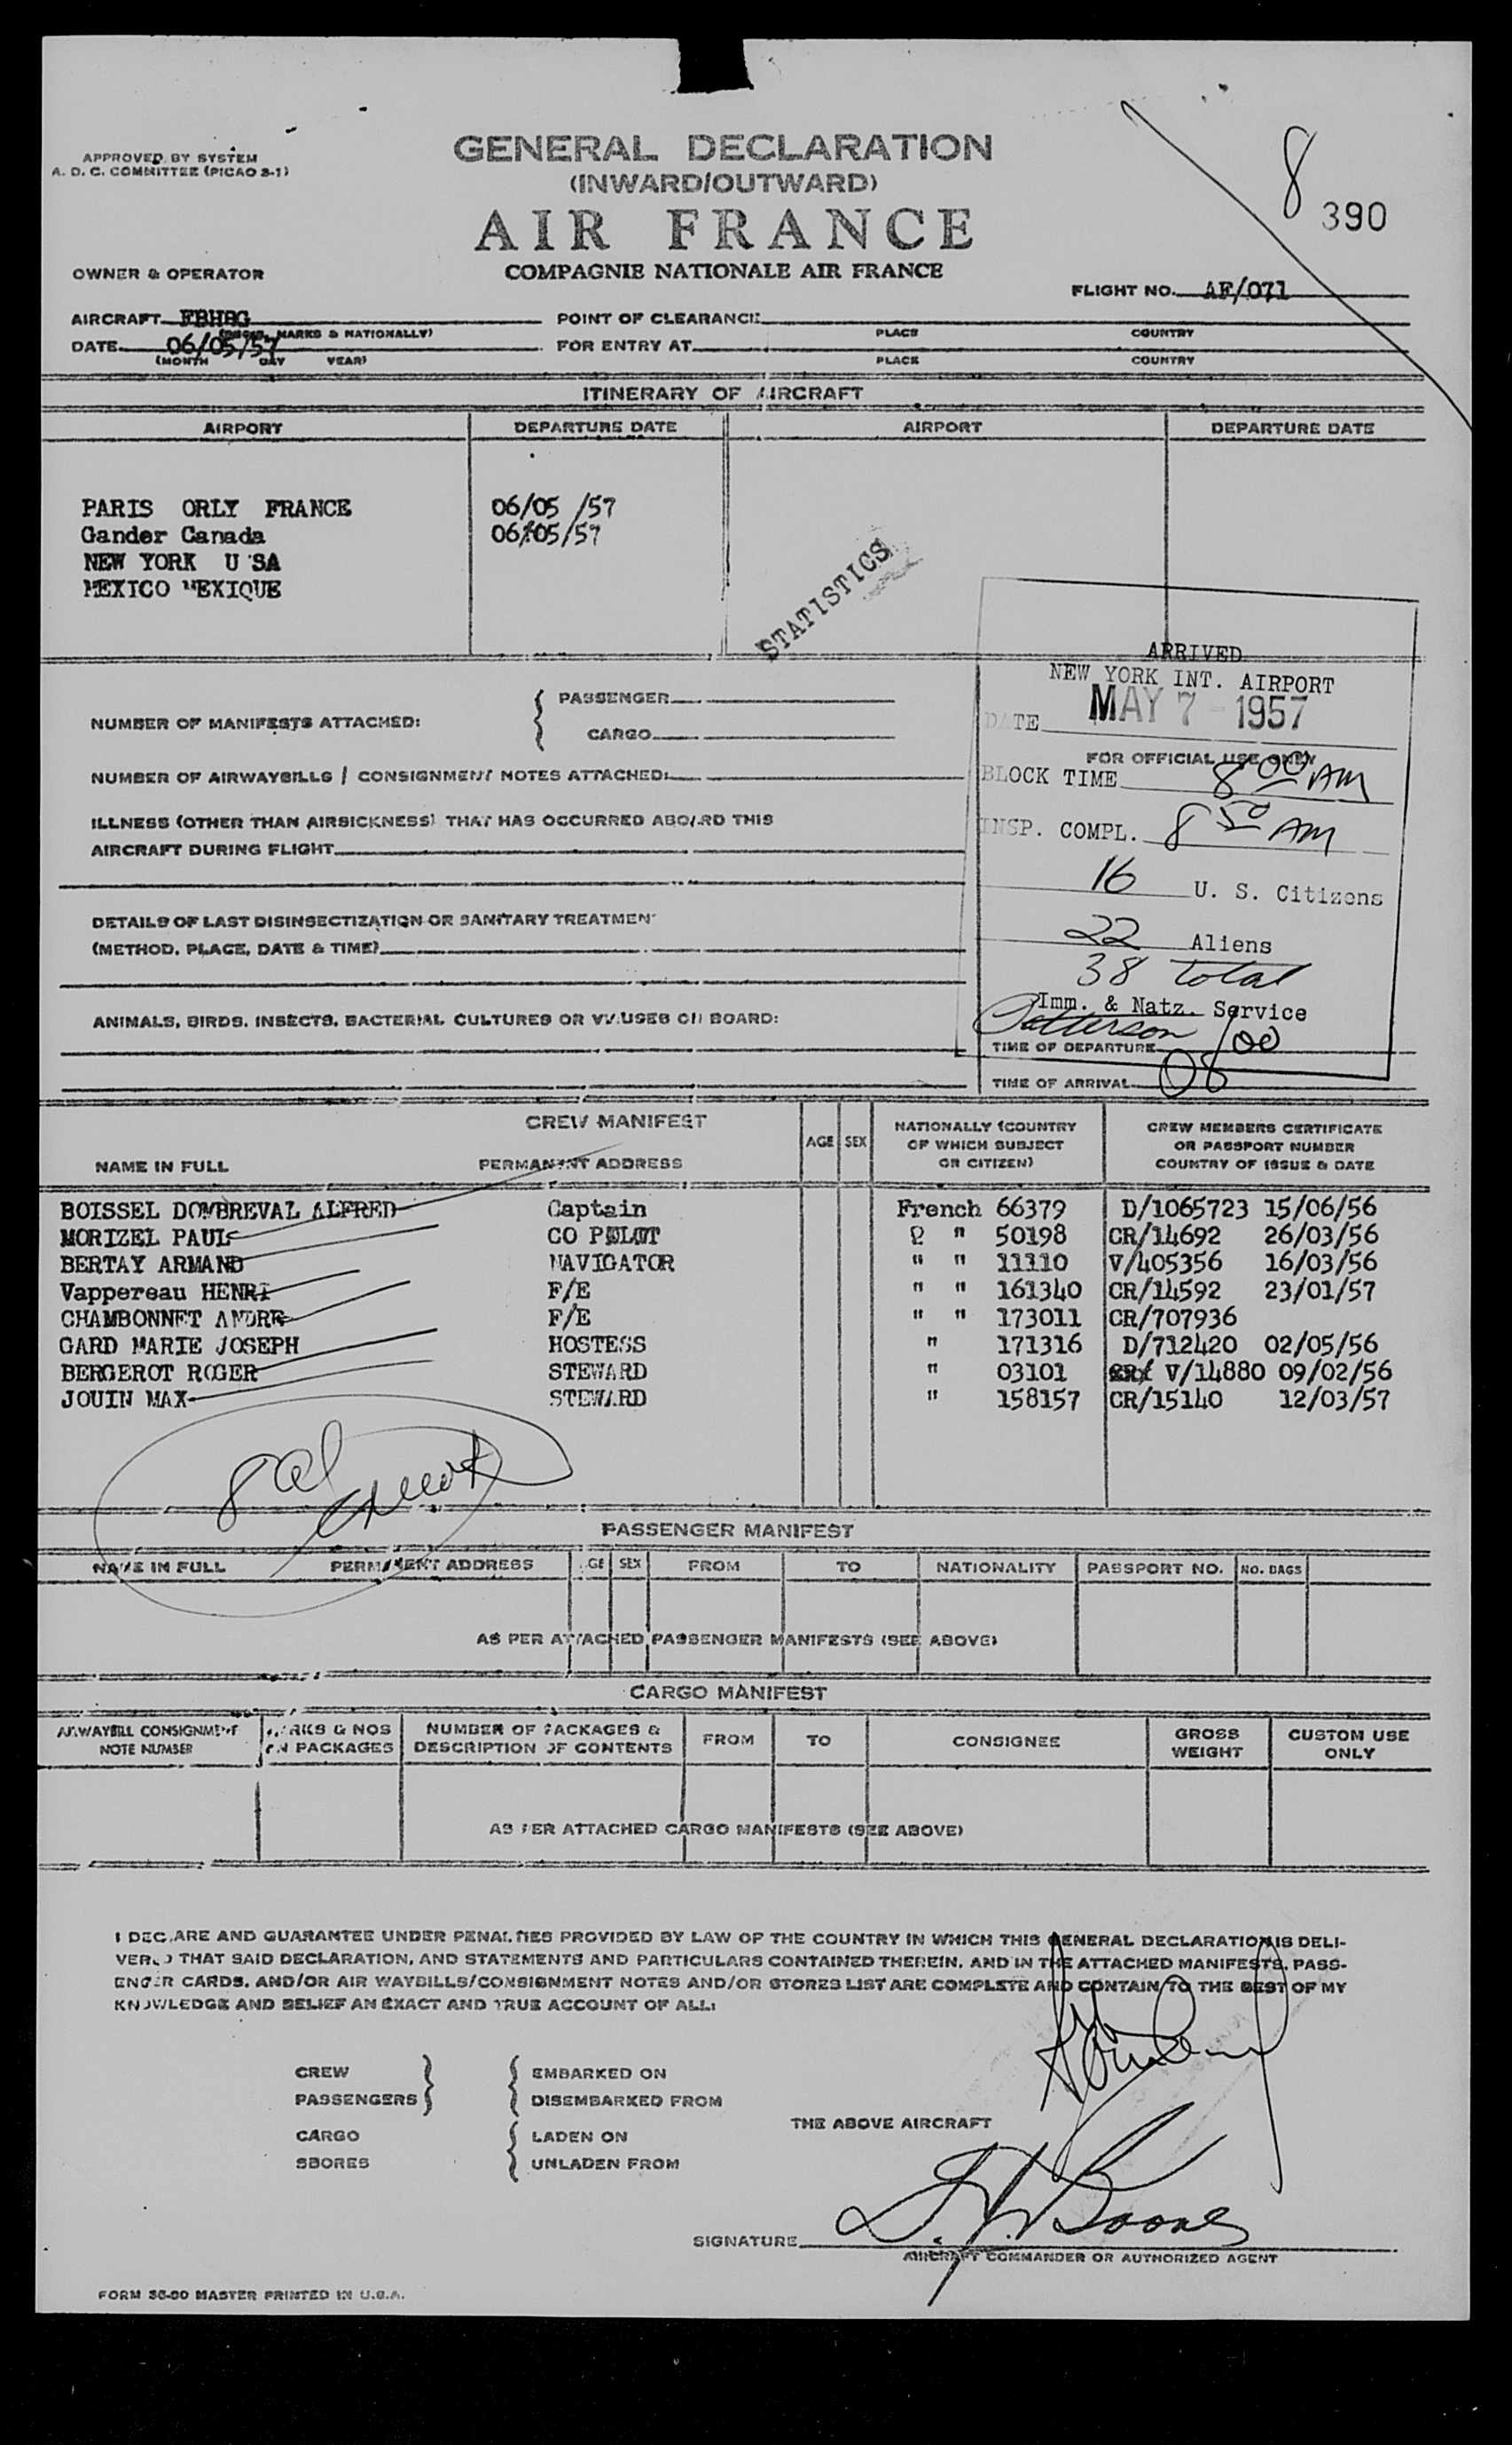 APPROVED BY SYSTEM
A. D. C. COMMITTEE (PICAO 3-1)
GENERAL DECLARATION
(INWARD/OUTWARD)
AIR FRANCE
COMPAGNIE NATIONALE AIR FRANCE
8
390
OWNER & OPERATOR
FLIGHT NO. AF/071
AIRCRAFT FBHBG
MARKS & NATIONALLY)
POINT OF CLEARANCE
PLACE COUNTRY
DATE 06/05/57
(MONTH DAY YEAR)
FOR ENTRY AT
PLACE COUNTRY
ITINERARY OF AIRCRAFT
AIRPORT DEPARTURE DATE AIRPORT DEPARTURE DATE
PARIS ORLY FRANCE 06/05 /57
Gander Canada 06/05/57
NEW YORK U SA
MEXICO MEXIQUE
STATISTICS
ARRIVED
NEW YORK INT. AIRPORT
DATE MAY 7 - 1957
FOR OFFICIAL USE ONLY
BLOCK TIME 8 00 AM
INSP. COMPL. 8 50 AM
16 U. S. Citizens
22 Aliens
38 total
Imm. & Natz. Service
Patterson
TIME OF DEPARTURE
TIME OF ARRIVAL 08/00
NUMBER OF MANIFESTS ATTACHED:
PASSENGER
CARGO
NUMBER OF AIRWAYBILLS / CONSIGNMENT NOTES ATTACHED:
ILLNESS (OTHER THAN AIRSICKNESS) THAT HAS OCCURRED ABOARD THIS
AIRCRAFT DURING FLIGHT
DETAILS OF LAST DISINSECTIZATION OR SANITARY TREATMENT
(METHOD, PLACE, DATE & TIME)
ANIMALS, BIRDS, INSECTS, BACTERIAL CULTURES OR VIRUSES ON BOARD:
CREW MANIFEST
NAME IN FULL PERMANENT ADDRESS
AGE SEX
NATIONALLY (COUNTRY
OF WHICH SUBJECT
OR CITIZEN)
CREW MEMBERS CERTIFICATE
OR PASSPORT NUMBER
COUNTRY OF ISSUE & DATE
BOISSEL DOMBREVAL ALFRED Captain French 66379 D/1065723 15/06/56
MORIZEL PAUL CO PILOT " 50198 CR/14692 26/03/56
BERTAY ARMAND NAVIGATOR " " 11110 V/405356 16/03/56
Vappereau HENRI F/E " " 161340 CR/14592 23/01/57
CHAMBONNET ANDRE F/E " " 173011 CR/707936
GARD MARIE JOSEPH HOSTESS " 171316 D/712420 02/05/56
BERGEROT ROGER STEWARD " 03101 V/14880 09/02/56
JOUIN MAX STEWARD " 158157 CR/15140 12/03/57
PASSENGER MANIFEST
NAME IN FULL PERMANENT ADDRESS AGE SEX FROM TO NATIONALITY PASSPORT NO. NO. BAGS
AS PER ATTACHED PASSENGER MANIFESTS (SEE ABOVE)
CARGO MANIFEST
AIRWAYBILL CONSIGNMENT
NOTE NUMBER
MARKS & NOS
ON PACKAGES
NUMBER OF PACKAGES &
DESCRIPTION OF CONTENTS
FROM TO CONSIGNEE
GROSS
WEIGHT
CUSTOM USE
ONLY
AS PER ATTACHED CARGO MANIFESTS (SEE ABOVE)
I DECLARE AND GUARANTEE UNDER PENALTIES PROVIDED BY LAW OF THE COUNTRY IN WHICH THIS GENERAL DECLARATION IS DELI-
VERED THAT SAID DECLARATION, AND STATEMENTS AND PARTICULARS CONTAINED THEREIN, AND IN THE ATTACHED MANIFESTS, PASS-
ENGER CARDS, AND/OR AIR WAYBILLS/CONSIGNMENT NOTES AND/OR STORES LIST ARE COMPLETE AND CONTAIN TO THE BEST OF MY
KNOWLEDGE AND BELIEF AN EXACT AND TRUE ACCOUNT OF ALL:
CREW
PASSENGERS
EMBARKED ON
DISEMBARKED FROM
CARGO
SBORES
LADEN ON
UNLADEN FROM
THE ABOVE ABOVE AIRCRAFT
SIGNATURE
AIRCRAFT COMMANDER OR AUTHORIZED AGENT
FORM 36-90 MASTER PRINTED IN U.S.A.